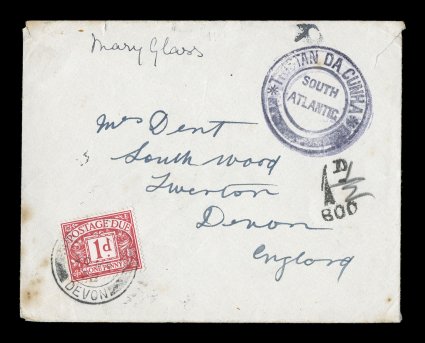 Mary Glass
TRISTAN DA CUNHA
SOUTH
ATLANTIC
Mrs Dent
South Wood
Tiverton
Devon
England
D
1/2
800
POSTAGE DUE
1d
ONE PENNY
DEVON